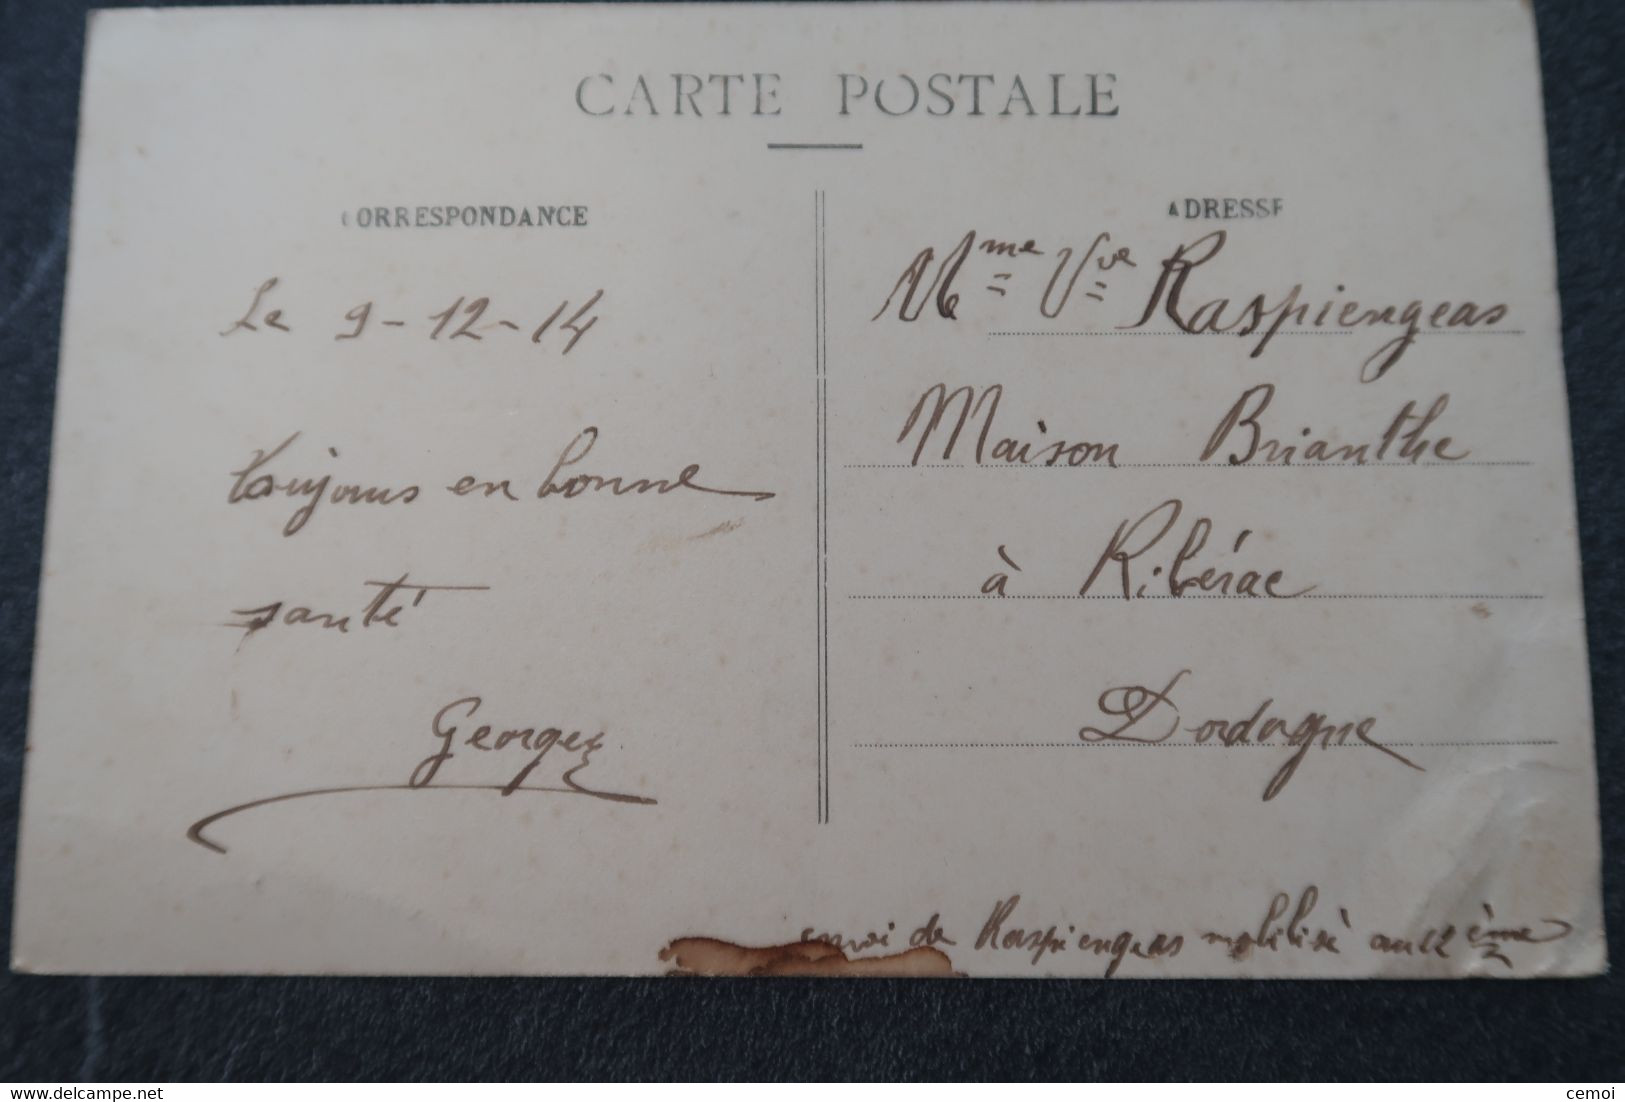 CARTE POSTALE
CORRESPONDANCE
Le 9-12-14
toujours en bonne
santé
Georges
ADRESSE
Mme Vve Raspiengeas
Maison Brianthe
à Ribérac
Dordogne
envoi de Raspiengeas mobilisé au 12ème
www.delcampe.net
cemoi